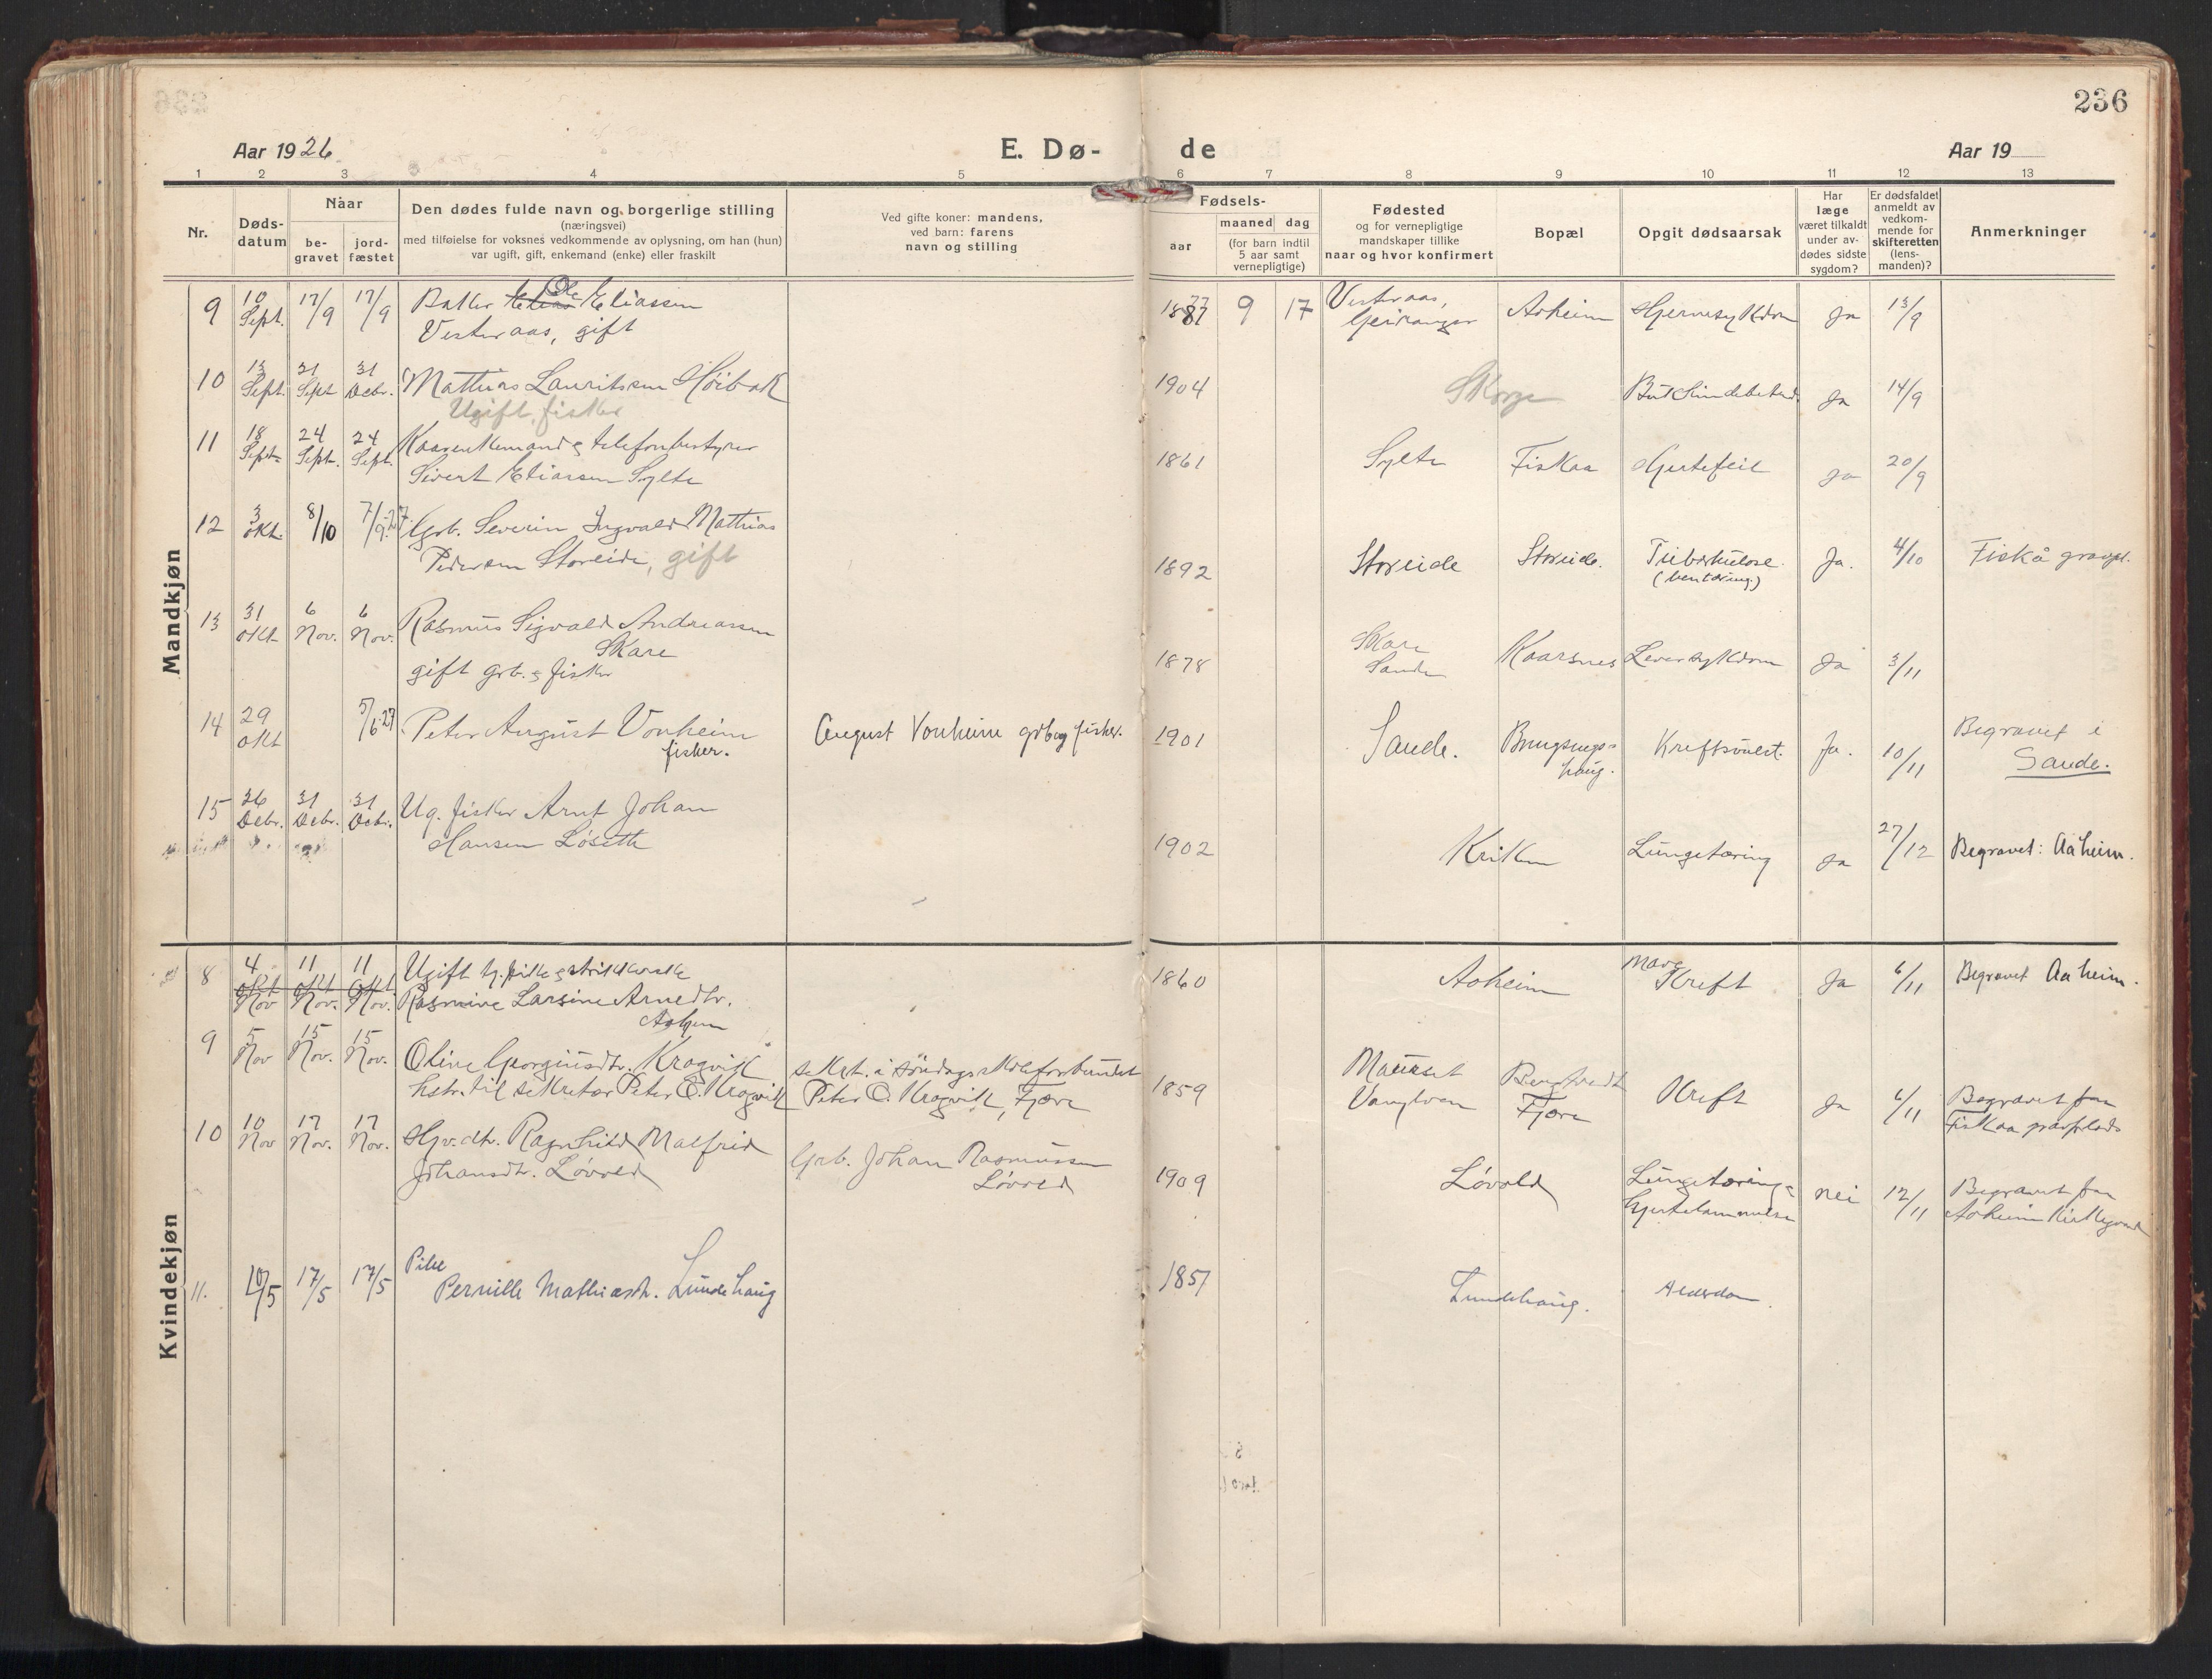 236
Aar 1926
E. Dø-
de
Aar 19
1 2 3 4 5 6 7 8 9 10 11 12 13
Nr.
Døds-
datum
Naar
be-
gravet
jord-
fæstet
Den dødes fulde navn og borgerlige stilling
(næringsvei)
med tilføielse for voksnes vedkommende av oplysning, om han (hun)
var ugift, gift, enkemand (enke) eller fraskilt
Ved gifte koner: mandens,
ved barn: farens
navn og stilling
Fødsels-
aar
maaned dag
(for barn indtil
5 aar samt
vernepligtige)
Fødested
og for vernepligtige
mandskaper tillike
naar og hvor konfirmert
Bopæl
Opgit dødsaarsak
Har
læge
været tilkaldt
under av-
dødes sidste
sygdom?
Er dødsfaldet
anmeldt av
vedkom-
mende for
skifteretten
(lens-
manden)?
Anmerkninger
Mandkjøn
9 10 Sept. 17/9 17/9 Ole Eliassen
Vesteraas, gift
9 17 Vesteraas, Geiranger Aaheim Hjernesykdom Ja 13/9
10 13 Sept. 21 Sept 31 Decbr. Mathias Lauritsen Høibak
Ugift, fisker
1904 Skorge Ja 14/9
11 18 Sept. 24 Sept. 24 Sept. telefonbestyrer
Sivert Eliassen Sylte
1861 Sylte Fiskaa Hjertefeil Ja 20/9
12 3 okt. 8/10 7/9.27 Grb. Severin Ingvald Mathias
Pedersen Storeide, gift
1892 Storeide Storeide. Tuberkulose
(bentæring) Ja. 4/10 Fiskå gravpl.
13 31 okt 6 Nov. 6 Nov. Rasmus Sigvald Andreassen
Skare
gift grb. & fisker
1878 Skare
Sande Kaarsnes Leversykdom Ja 3/11
14 29 okt 5/6 27 Peter August Vonheim
fisker.
August Vonheim grb og fisker. 1901 Sande. haug. Kreftsvulst. Ja. 10/11 Begravet i
Sande.
15 26 Decbr. 31 Decbr. 31 Decbr. Ug. fisker Arnt Johan
Hansen Løseth
1902 Kriken Lungetæring Ja 27/12 Begravet: Aaheim.
Kvindekjøn
8 4 okt Nov 11 okt Nov. 11 okt Nov. Ugift tj. pike & strikkerske
Rasmine Larsine Arnedtr.
Aaheim
1860 Aaheim Mave
Kreft Ja 6/11 Begravet Aaheim.
9 5 Nov 15 Nov. 15 Nov. Oline Georginedtr. Kragvik
hstr. til sekretær Peter O. Kragvik
sekrt. i søndagsskoleforbundet
Peter O. Kragvik, Fjære
1859 Maurset
Vanylven Fjære Kreft Ja 6/11 Begravet paa
Fiskaa gravplads
10 10 Nov 17 Nov. 17 Nov. Hjv. dtr. Ragnhild Malfrid
Johansdtr. Løvold
Grb. Johan Rasmussen
Løvold
1909 Løvold Lungetæring &
Hjertelammelse nei 12/11 Begravet paa
Aaheim kirkegaard
11. 10/5 17/5 17/5 Pike
Pernille Mathiasdtr. Lundehaug
1857 Lundehaug. Alderdom.